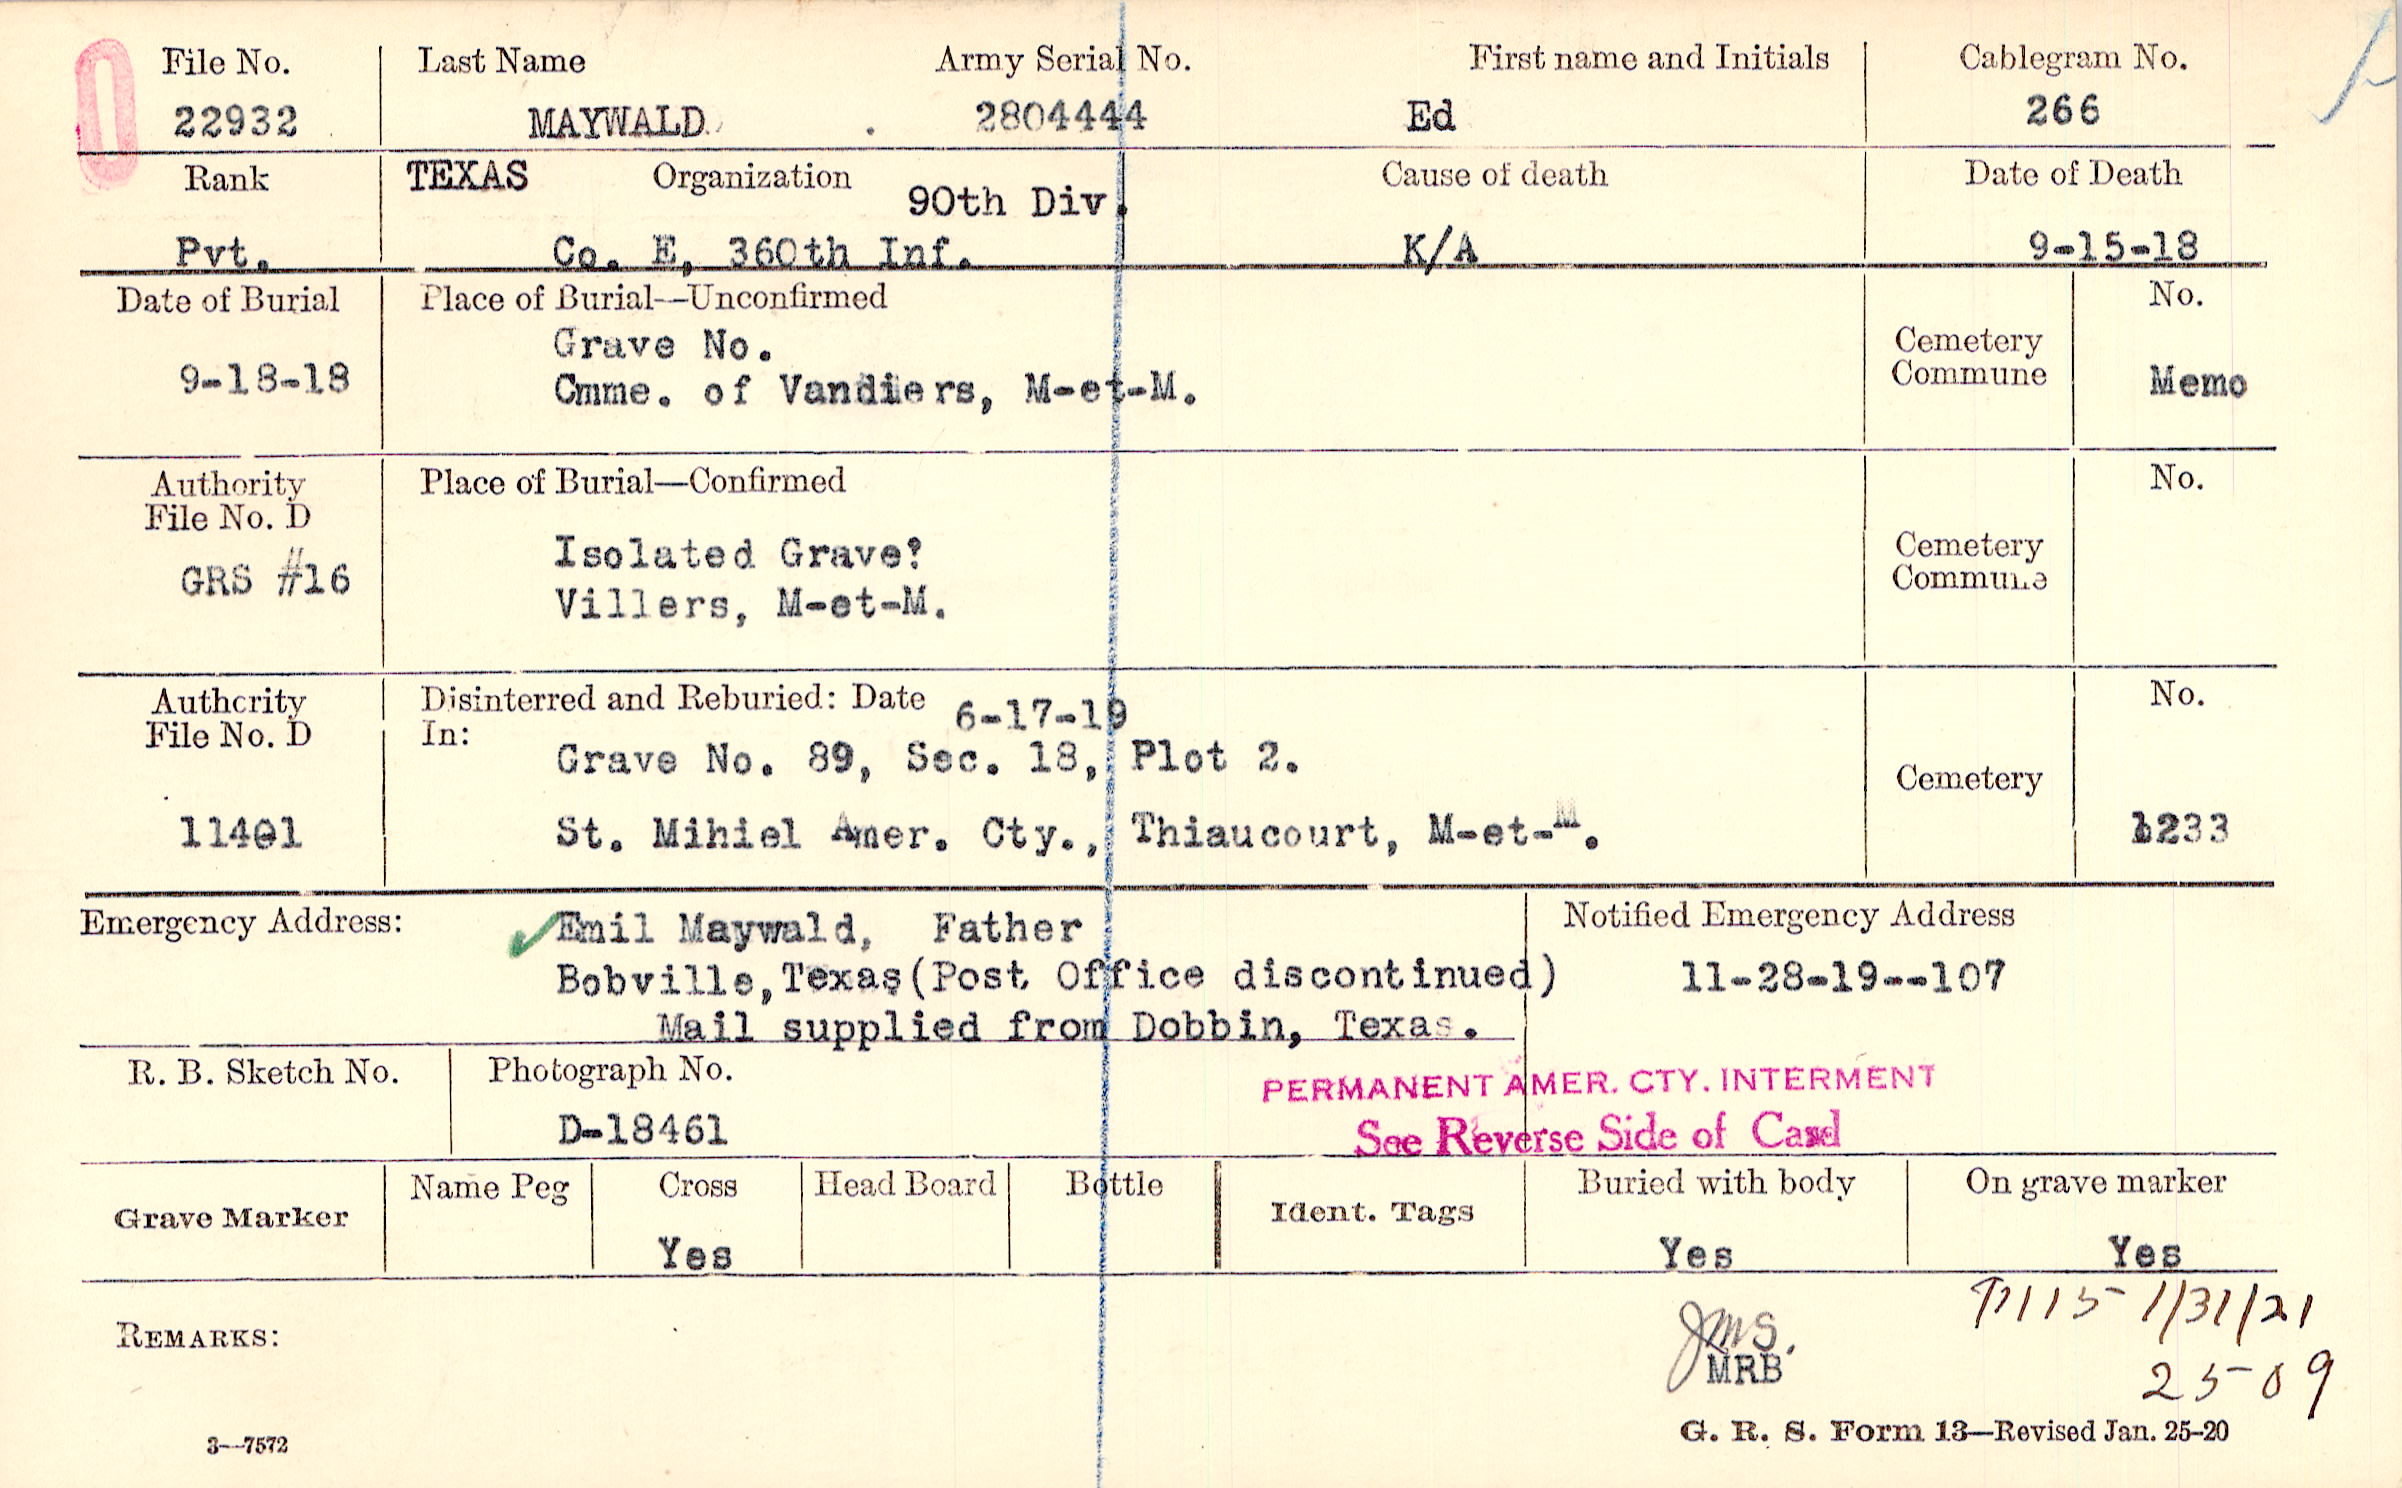 File No. Last Name Army Serial No. First name and Initials Cablegram No.
22932 MAYWALD 2804444 Ed 266
Rank TEXAS Organization Cause of death Date of Death
90th Div.
Pvt. Co. E, 360th Inf. K/A 9-15-18
Date of Burial Place of Burial—Unconfirmed No.
Grave No. Cemetery
9-18-18 Cmme. of Vandiers, M-et-M. Commune Memo
Authority Place of Burial—Confirmed No.
File No. D
GRS #16 Isolated Grave? Cemetery
Villers, M-et-M. Commune
Authority Disinterred and Reburied: Date 6-17-19 No.
File No. D In:
Grave No. 89, Sec. 18, Plot 2. Cemetery
11401 St. Mihiel Amer. Cty., Thiaucourt, M-et-M. 1233
Emergency Address: Emil Maywald, Father Notified Emergency Address
Bobville,Texas(Post Office discontinued) 11-28-19--107
Mail supplied from Dobbin, Texas.
R. B. Sketch No. Photograph No. PERMANENT AMER. CTY. INTERMENT
D-18461 See Reverse Side of Card
Grave Marker Name Peg Cross Head Board Bottle Ident. Tags Buried with body On grave marker
Yes Yes Yes
1/31/21
REMARKS: JMS.
MRB 2509
3—7572 G. R. S. Form 13—Revised Jan. 25-20